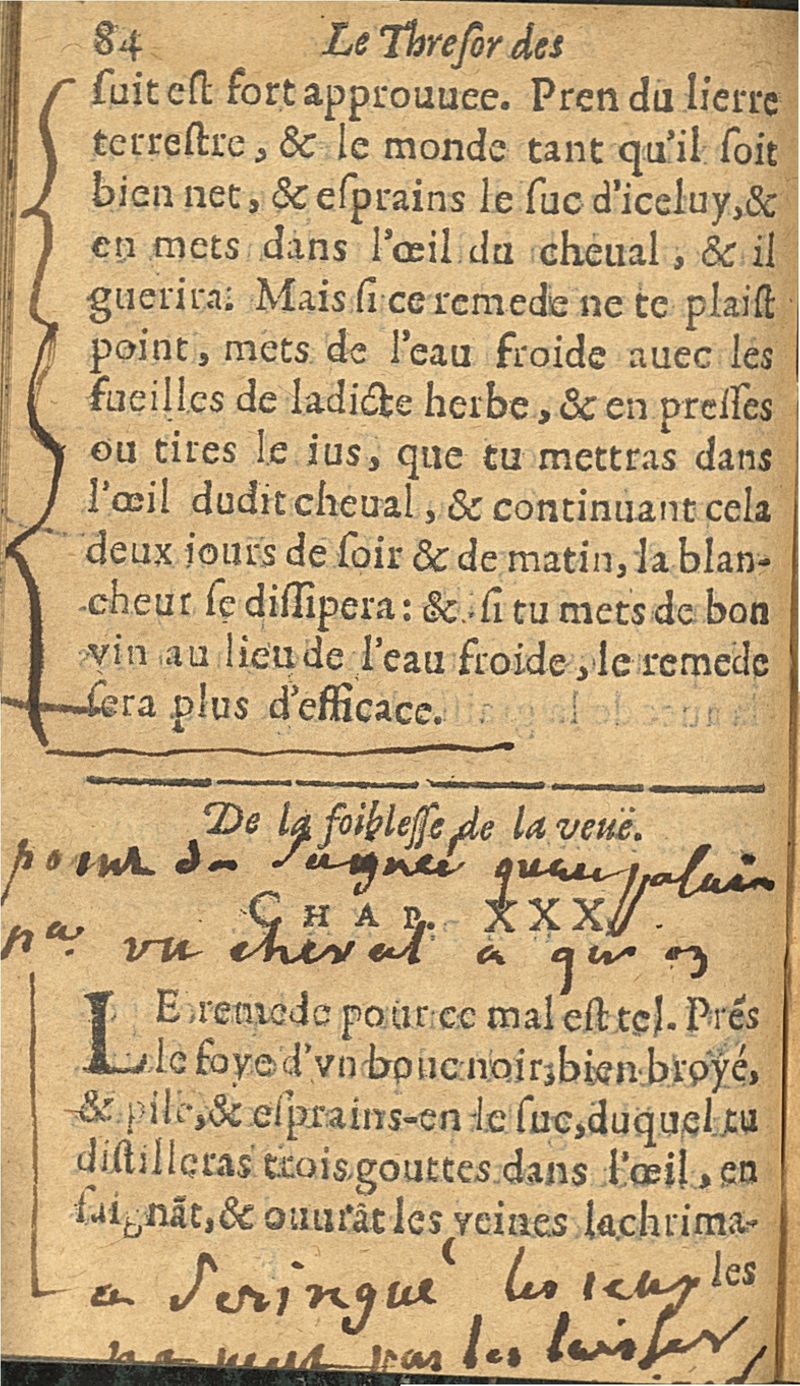 84 Le Thresor des
suit est fort approuuee. Pren du lierre
terrestre, & le monde tant qu'il soit
bien net, & esprains le suc d'iceluy, &
en mets dans l'œil du cheual, & il
guerira. Mais si ce remede ne te plaist
point, mets de l'eau froide auec les
fueilles de ladicte herbe, & en presses
ou tires le ius, que tu mettras dans
l'œil dudit cheual, & continuant cela
deux iours de soir & de matin, la blan-
cheur se dissipera: & si tu mets de bon
vin au lieu de l'eau froide, le remede
sera plus d'efficace.
De la foiblesse de la veuë.
point de
CHAP. XXX.
vn cheval a qui on
LE remede pour ce mal est tel. Prẽs
le foye d'vn bouc noir, bien broyé,
& pilé, & esprains-en le suc, duquel tu
distilleras trois gouttes dans l'œil, en
saignãt, & ouurãt les veines lachrima-
les
a Seringué les ieux
pas les laisser